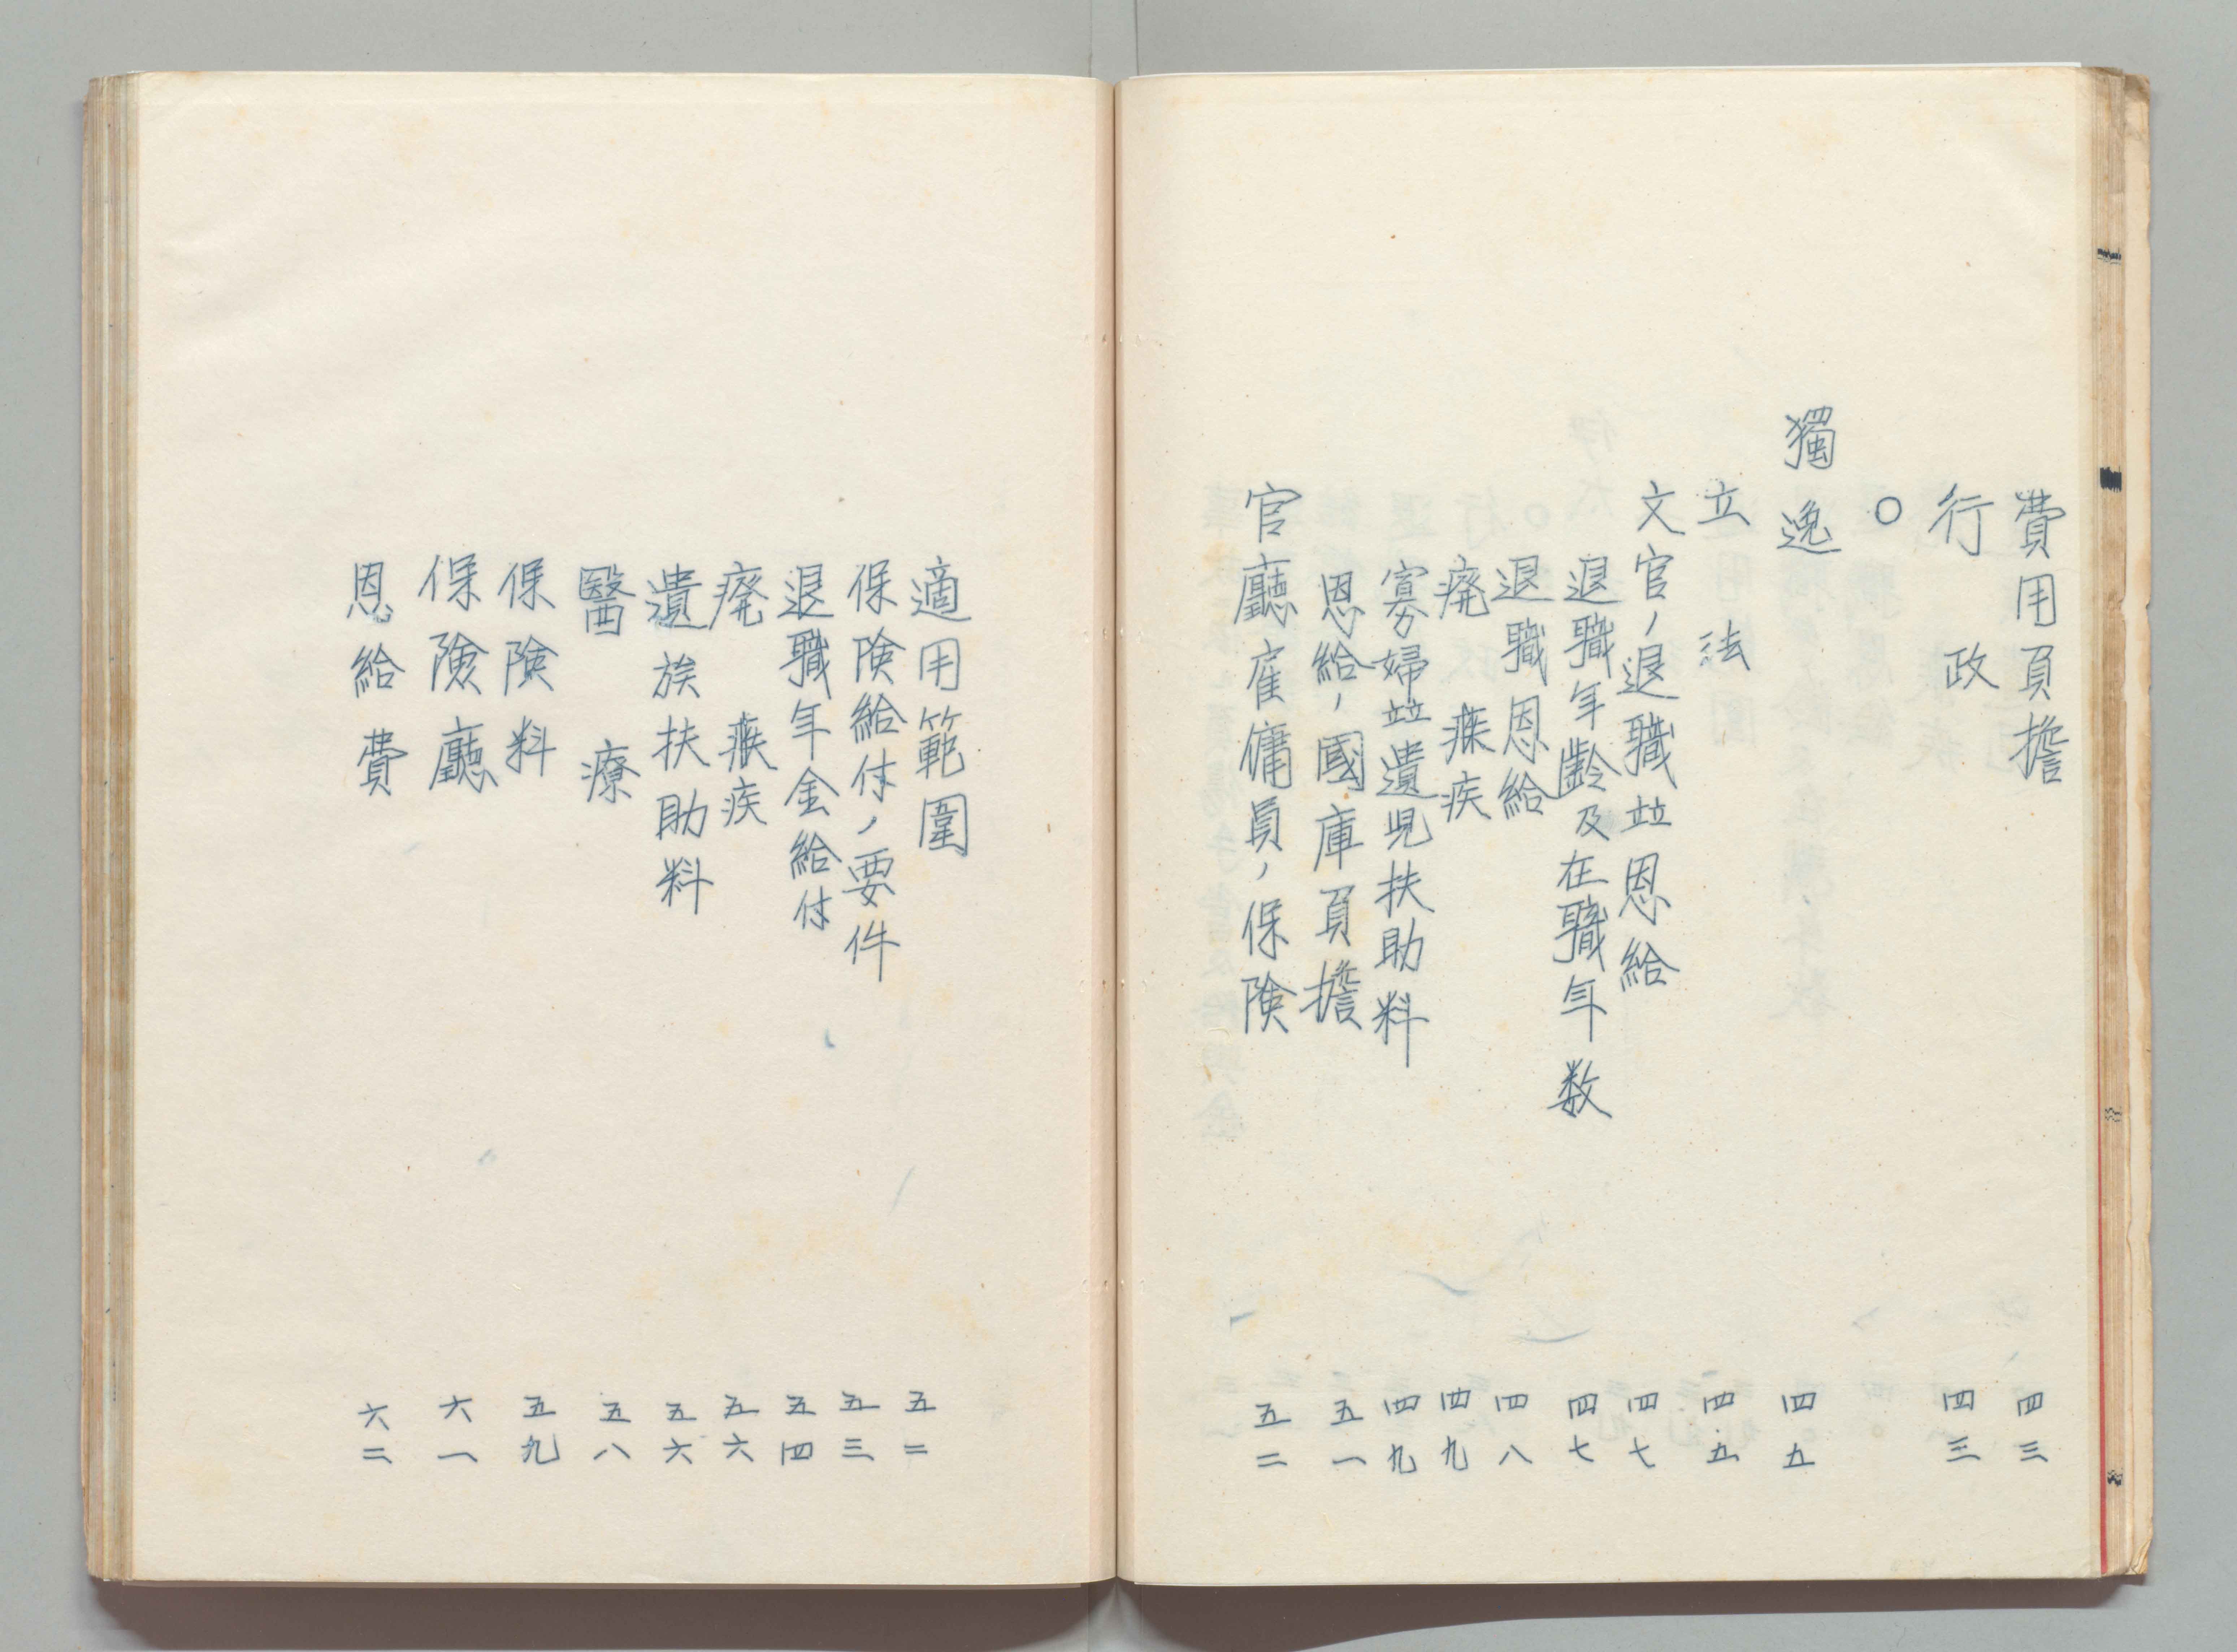 費用負擔 四三
行政 四三
○
獨逸 四五
立法 四五
文官ノ退職竝恩給 四七
退職年齡及在職年数 四七
退職恩給 四八
廃疾 四九
寡婦竝遺児扶助料 四九
恩給ノ國庫負擔 五一
官廳雇傭員ノ保険 五二
適用範圍 五二
保険給付ノ要件 五三
退職年金給付 五四
廃疾 五六
遺族扶助料 五六
醫療 五八
保険料 五九
保險廳 六一
恩給費 六二